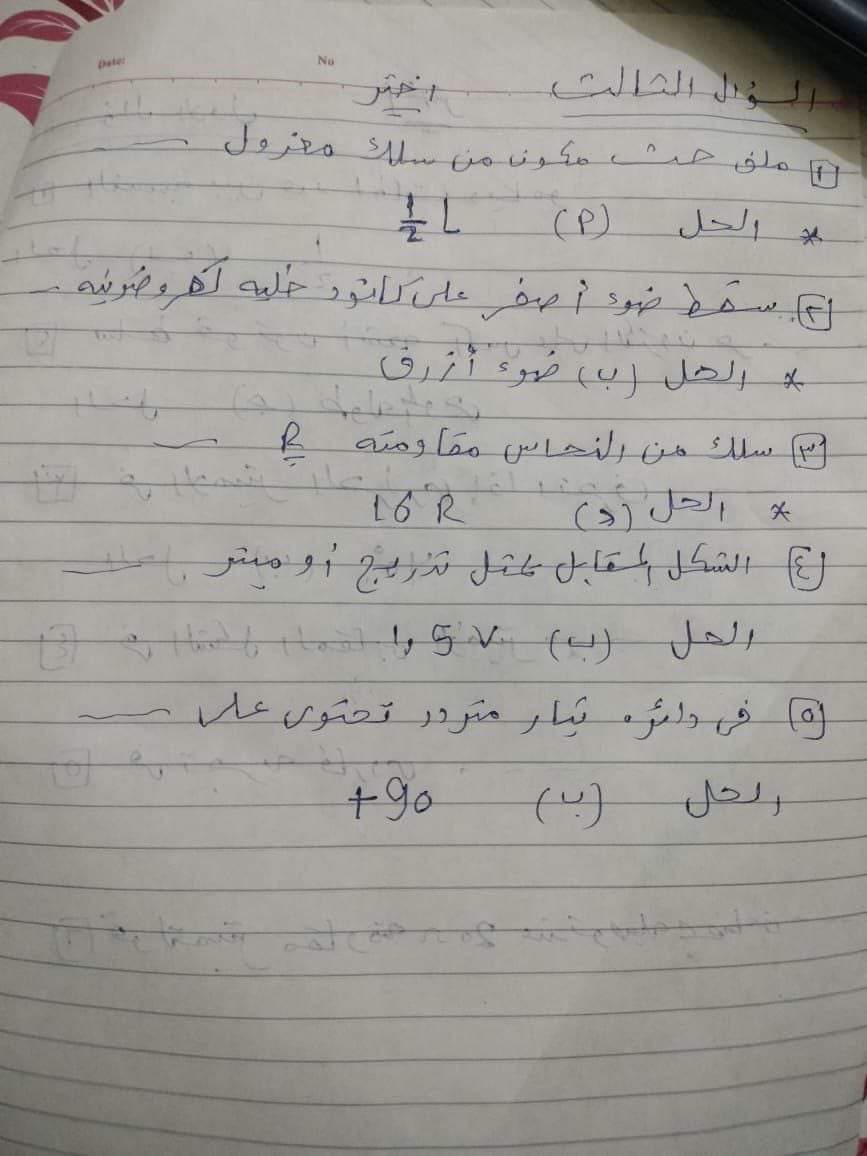 Date:
No
السؤال الثالث اختر
١ ملف حث مكون من سلك معزول
* الحل (P) 1/2 L
٢ سقط ضوء أصفر على كاثود خليه كهروضوئيه
* الحل (ب) ضوء أزرق
٣ سلك من النحاس مقاومته R
* الحل (د) 16 R
٤ الشكل المقابل يمثل تدريج أوميتر
الحل (ب) 5 V و1
٥ فى دائره تيار متردد تحتوى على
الحل (ب) +90